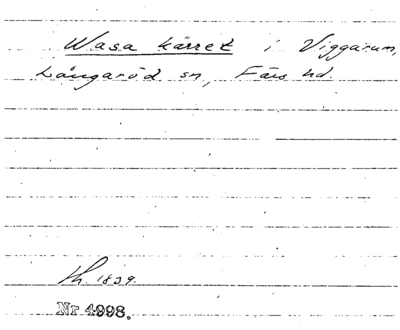 Wasa kärret i Viggarum,
Långaröd sn, Färs hd.
Th. 1839.
Nr 4998.